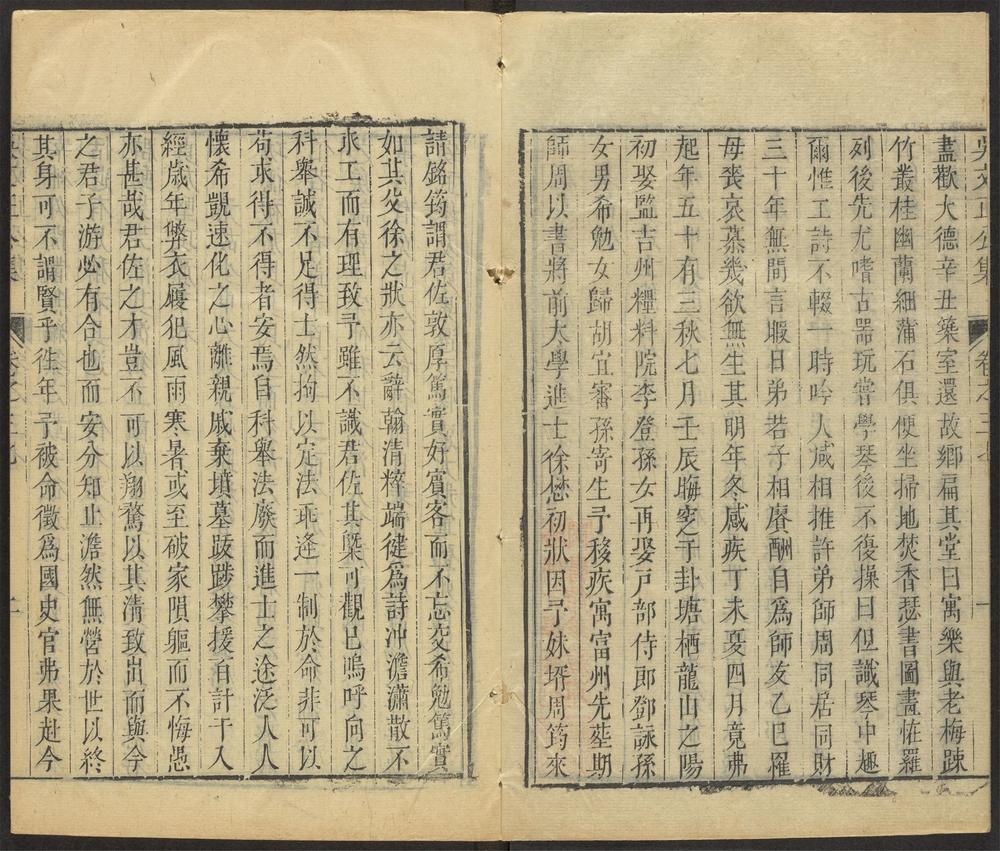 吳文正公集 卷之三十九 一
盡歡大德辛丑築室還故鄉扁其堂曰寓樂與老梅踈
竹叢桂幽蘭細蒲石俱便坐掃地焚香瑟書圖畫恠羅
列後先尤嗜古器玩嘗學琴後不復操曰但識琴中趣
爾惟工詩不輟一時吟人咸相推許弟師周同居同財
三十年無間言暇日弟若子相賡酬自為師友乙巳罹
母喪哀慕幾欲無生其明年冬感疾丁未夏四月竟弗
起年五十有三秋七月壬辰晦窆于卦塘栖龍山之陽
初娶監吉州糧料院李登孫女再娶戸部侍郎鄧詠孫
女男希勉女歸胡宜審孫寄生予移疾寓富州先塟期
師周以書將前太學進士徐懋初狀因予妹壻周筠來
請銘筠謂君佐敦厚篤實好賓客而不忘交希勉篤實
如其父徐之狀亦云辭翰清粹端徤為詩沖澹瀟散不
求工而有理致予雖不識君佐其槩可觀已嗚呼向之
科舉誠不足得士然拘以定法乖逢一制於命非可以
苟求得不得者安焉自科舉法廢而進士之途泛人人
懷希覬速化之心離親戚棄墳墓跋踄攀援百計干入
經歲年弊衣屨犯風雨寒暑或至破家隕軀而不悔愚
亦甚哉君佐之才豈不可以翔騖以其清致出而與今
之君子游必有合也而安分知止澹然無營於世以終
其身可不謂賢乎徃年予被命徵為國史官弗果赴今